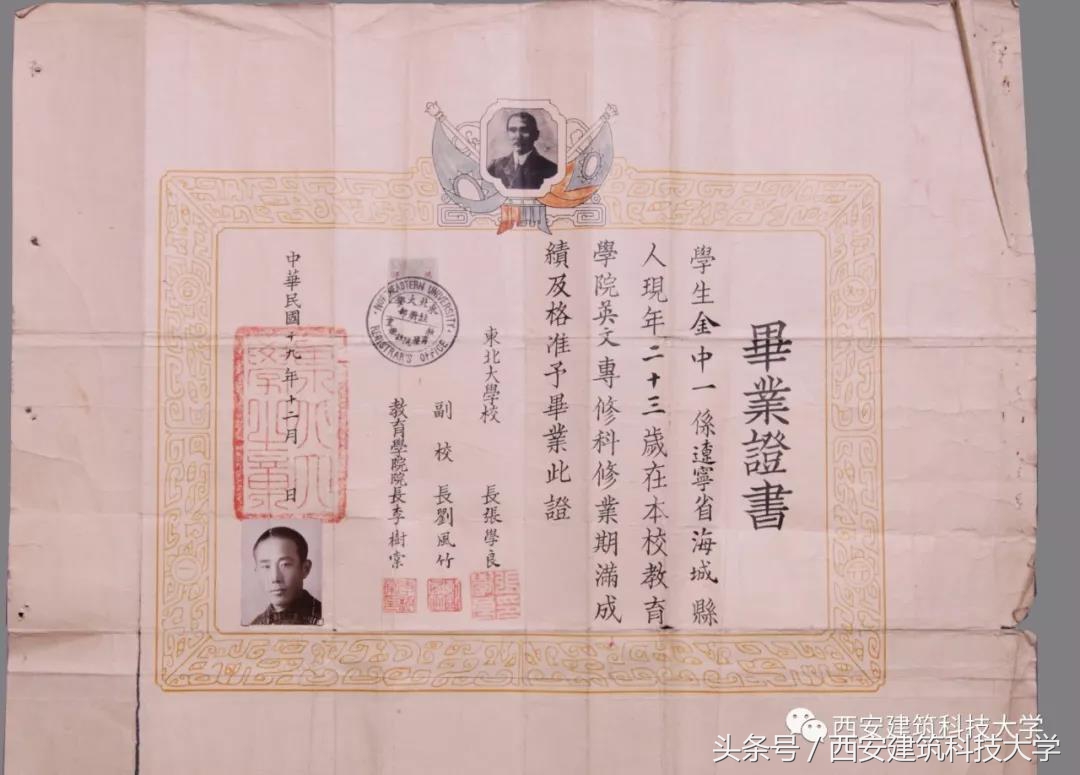 畢業證書
學生金中一係遼寧省海城縣
人現年二十三歲在本校教育
學院英文專修科修業期滿成
績及格准予畢業此證
東北大學校 長張學良
副校長劉風竹
教育學院院長李樹棠
NORTHEASTERN UNIVERSITY
REGISTRAR'S OFFICE
中華民國十九年十二月 日
西安建筑科技大学
头条号 / 西安建筑科技大学